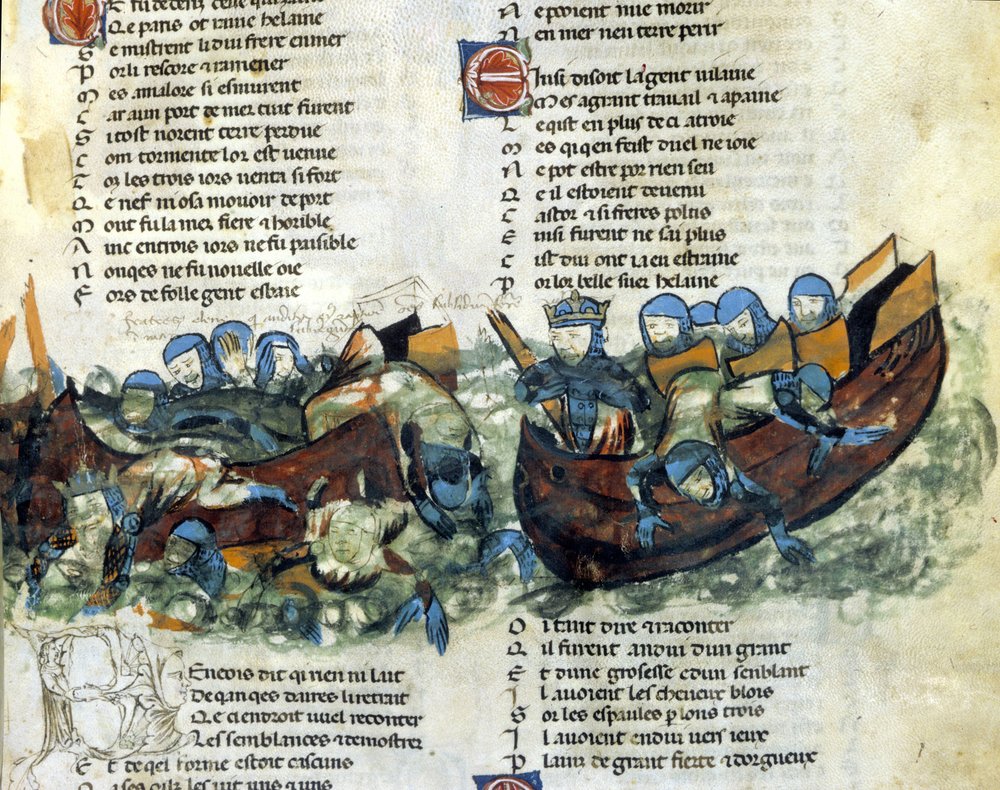 Qe paris ot rauie helaine
Se mistrent li dui frere en mer
Por li rescore & ramener
Mes a malore si esmurent
Car a un port de mer furent
Si tost norent terre perdue
Com tormente lor est uenue
Cor les trois iors uenta si fort
Qe nef ni osa mouoir de port
Mont fu la mer fiere & horible
Ainc en trois iors ne fu paisible
Nonqes ne fu nouelle oie
Fors de folle gent esbaie
Ne poient mie morir
Nen mer nen terre perir
Einsi disoit la gent uilaine
Mes a grant trauail & a paine
Le qist en plus de ci a troie
Mes qi en feist duel ne ioie
Ne pot estre por rien seu
Qe il estoient deuenu
Castor & si freres polus
Einsi furent ne sai plus
Cist dui ont ia en estraine
Por lor belle suer helaine
encois dit qi rien ni lait
De qanqes daires li retrait
Qe ci endroit uuel reconter
Les semblances & demostrer
Et de qel forme estoit cascuns
les uit uns & uns
Oi tant dire & raconter
Qil furent andui dun grant
Et dune grosesse & dun senblant
Il auoient les cheueux blois
Sor les espaules plons trois
Il auoient endui uers ieux
Plain de grant fierte & dorgueux